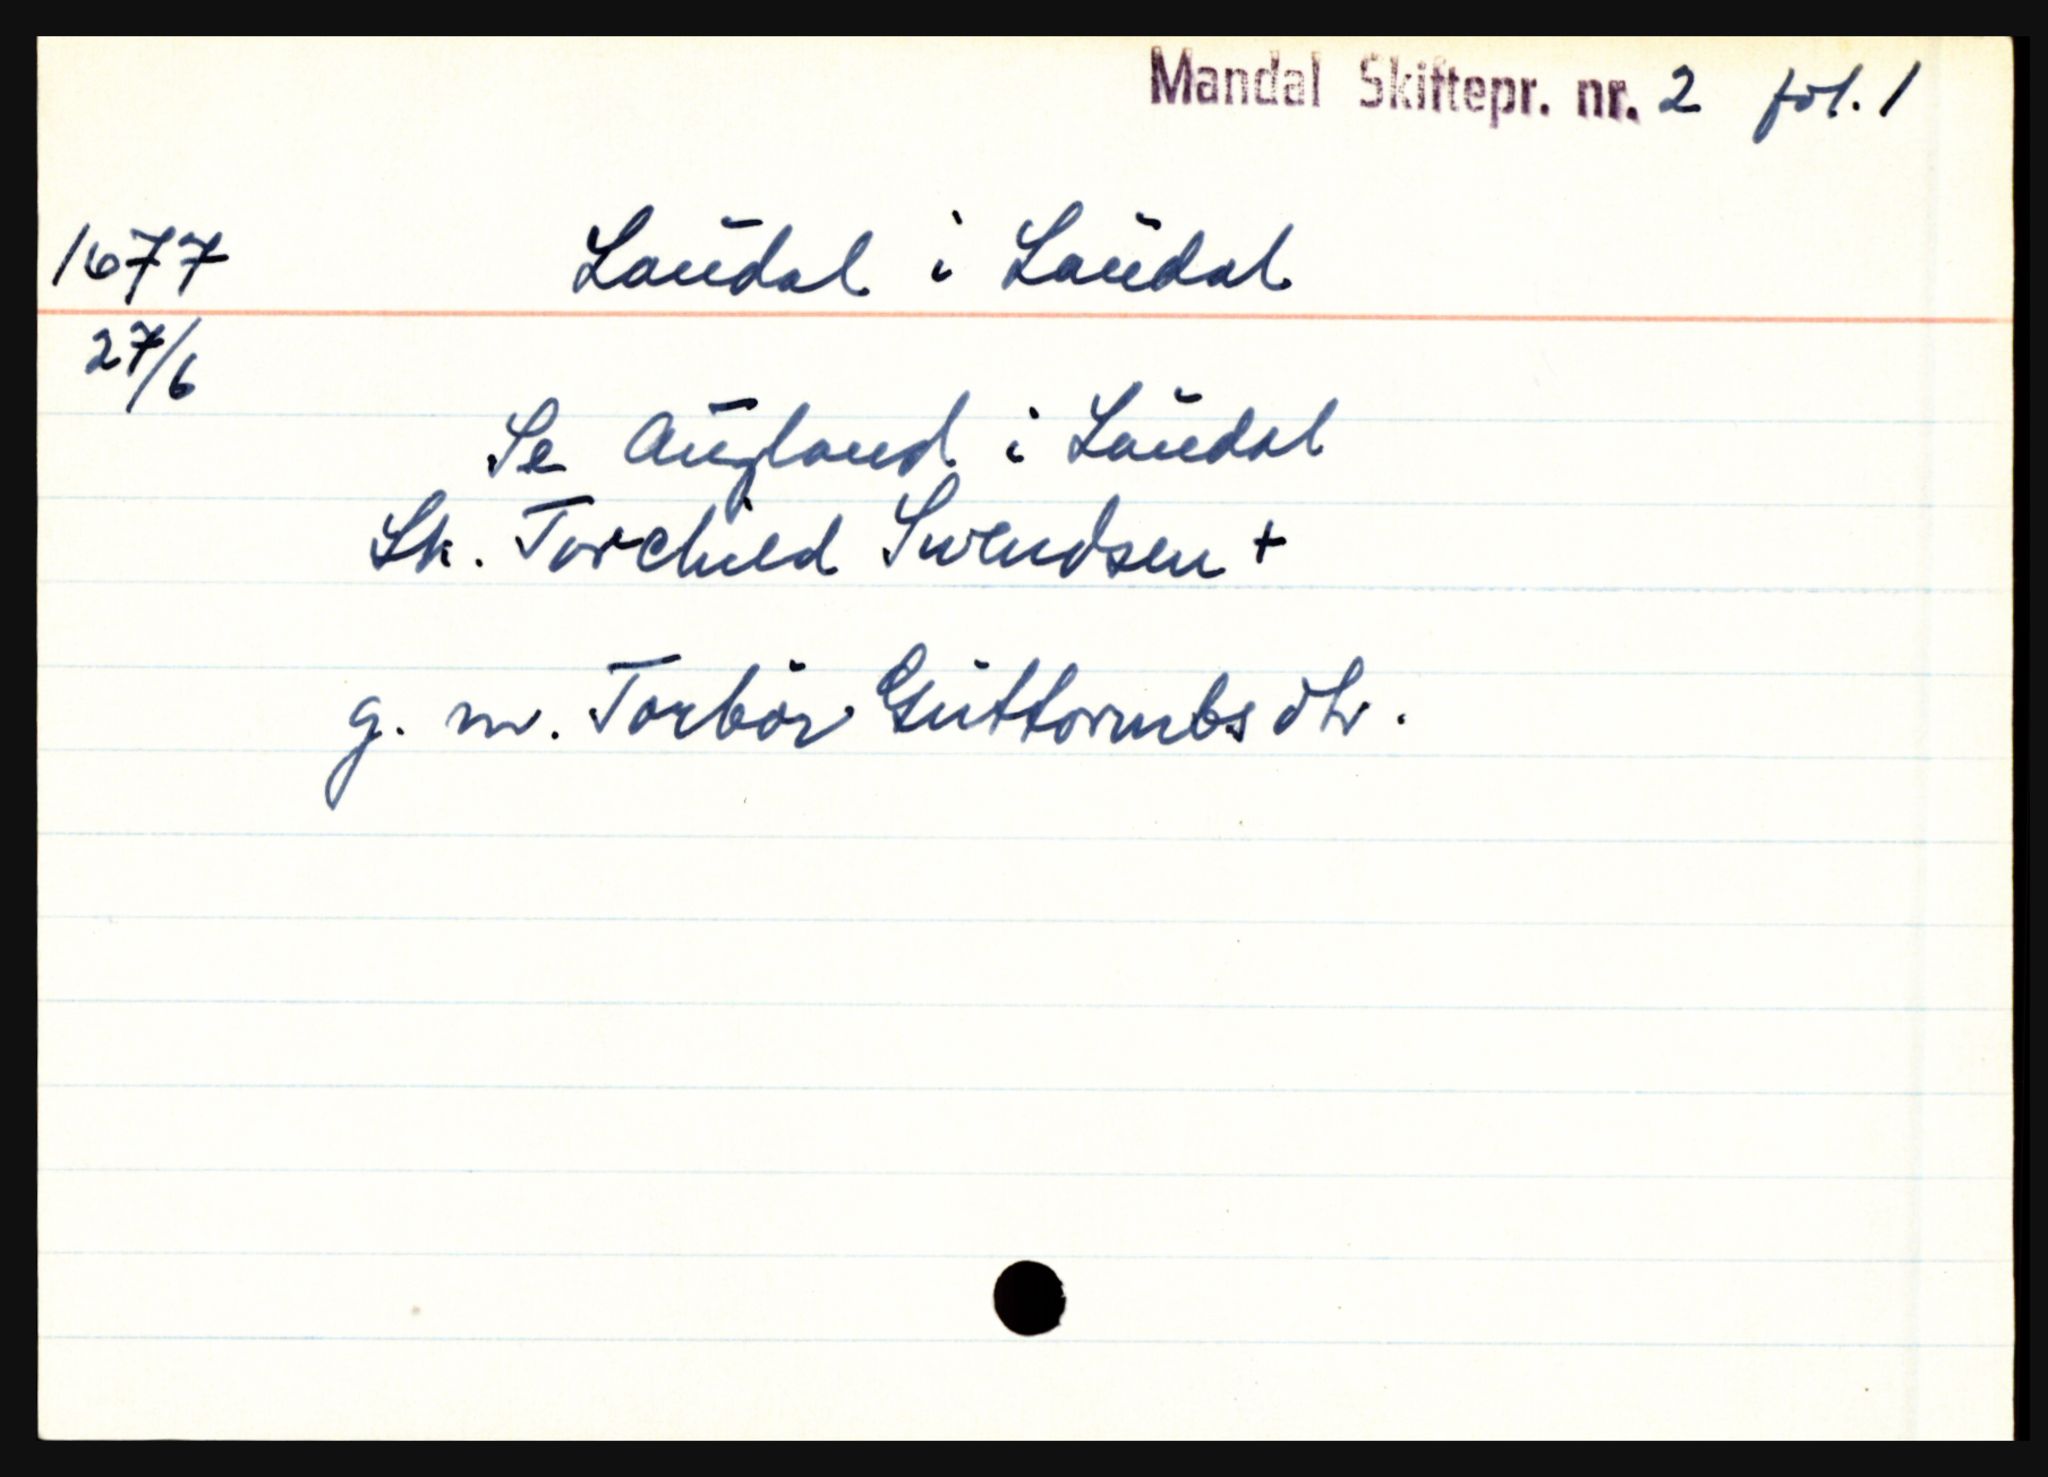 Mandal Skiftepr. nr. 2 fol. 1
1677 Laudal i Laudal
27/6
Se Augland i Laudal
Sk. Torchild Svendsen +
g. m. Torbor Guttormbsdtr.